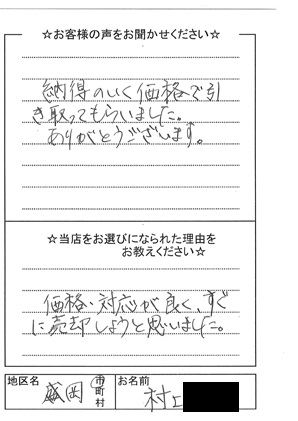 ☆お客様の声をお聞かせください☆
納得のいく価格で引
き取ってもらいました。
ありがとうございます。
☆当店をお選びになられた理由を
お教えください☆
価格・対応が良く、すぐ
に売却しようと思いました。
地区名
盛岡
市
町
村
お名前
村上